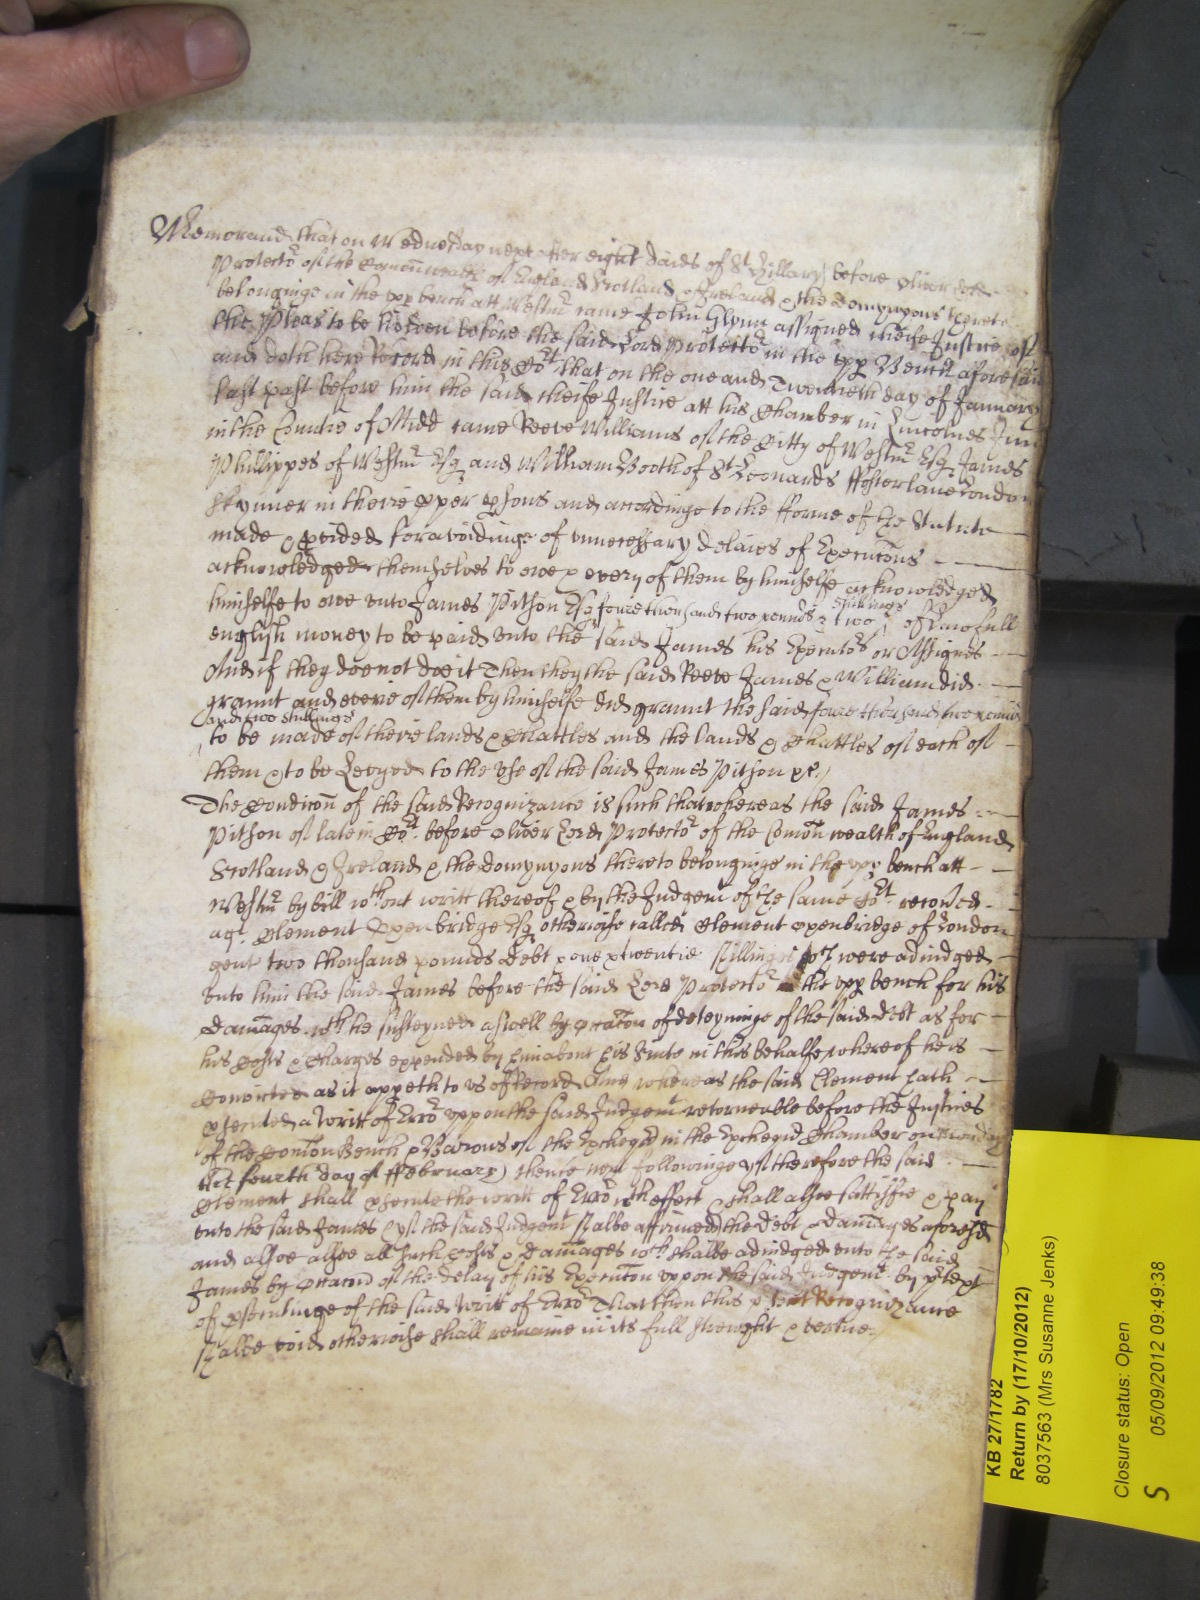 Memorand that on Wednesday next after eight daies of St Hillary before Oliver Lord
Protector of the Comonwealth of England Scotland & Ireland & the Domynyons thereto
belonginge in the upp bench att Westmr came John Glynn assigned cheife Justice of
the Pleas to be holden before the said Lord Protector in the upp Bench aforesaid
and doth here Record in this Cort that on the one and Twentieth day of January
last past before him the said cheife Justice att his Chamber in Lincolnes Inn
in the County of Midd came Reeve Williams of the Citty of Westmr Esq James
Phillippes of Westmr Esq and William Booth of St Leonards ffoster lane London
Skynner in theire pper psons and accordinge to the fforme of the Statute
made & pvided for avoidinge of unnecessary delaies of Executons
acknowledged themselves to owe & every of them by himselfe acknowledged
himselfe to owe unto James Pitson Esq foure thousand two pounds & two shillings of lawfull
english money to be paid unto the said James his Executors or Assignes
And if they doe not doe it Then they the said Reeve James & William did
graunt and every of them by himselfe did graunt the said foure thousand two pounds
and two shillings
to be made of theire lands & Chattles and the lands & Chattles of each of
them & to be Levyed to the use of the said James Pitson &c
The Condicon of the said Recognizance is such that whereas the said James
Pitson of late in Cort before Oliver Lord Protector of the Comon wealth of England
Scotland & Ireland & the domynyons thereto belonginge in the upp bench att
Westmr by bill wthout writt thereof & by the Judgemt of the same Cort recovred
agt Clement Oxenbridge Esq otherwise called Clement Oxenbridge of London
gent two thousand pounds debt & one & twentie shillings wch were adiudged
unto him the said James before the said Lord Protector in the upp bench for his
Damages wch he susteyned aswell by occacon of deteyninge of the said debt as for
his Costs & Charges expended by him about his Suite in this behalfe whereof he is
Convicted as it appeth to us of Record And whereas the said Clement hath
psecuted a Writt of Error uppon the said Judgemt retorneable before the Justices
of the Comon Bench & Barons of the Excheqr in the Excheqr Chamber on Monday
the fourth day of ffebruary thence next followinge yf therefore the said
Clement shall psecute the writt of Error wth effect & shall alsoe sattisfie & pay
unto the said James yf the said Judgemt shalbe affirmed the debt & damages aforesd
and alsoe all such Costs & Damages wch shalbe adiudged unto the said
James by occacon of the delay of his Executon uppon the said Judgemt by ptext
of psecutinge of the said Writt of Error That then this psent Recognizance
shalbe void otherwise shall remaine in its full strenght & vertue
KB 27/1782
Return by (17/10/2012)
8037563 (Mrs Susanne Jenks)
Closure status: Open
S 05/09/2012 09:49:38